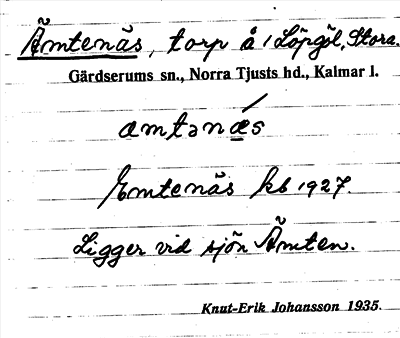 Ämtenäs, torp å 1 Löpgöl, Stora.
Gärdserums sn., Norra Tjusts hd., Kalmar l.
amtənæ̲s
Emtenäs kb 1927.
Ligger vid sjön Ämten.
Knut-Erik Johansson 1935.